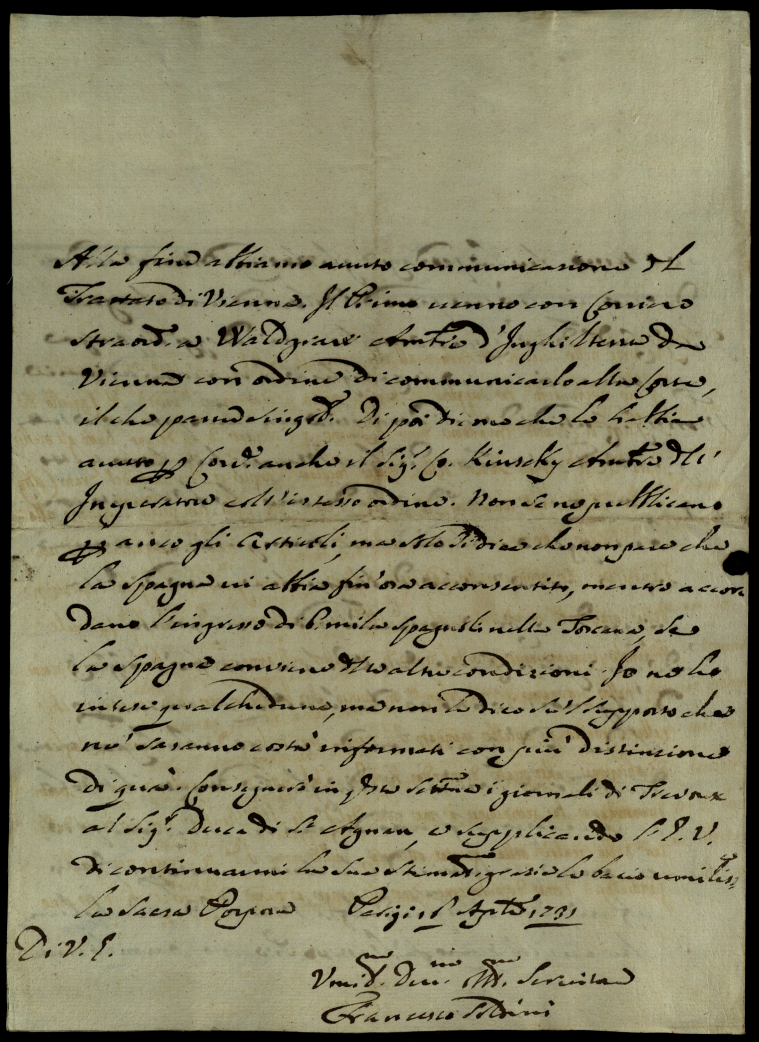 Alla fine abbiamo avuto communicazione del
Trattato di Vienna. Il Primo venne con Corriere
straord. a Waldgrave Amb.re d'Inghilterra da
Vienna con ordine di communicarlo alla Corte,
il che Di poi dicono che lo habbia
avuto p anche il Sig.r Co. Kinscky Amb.re dell'
Imperatore coll'istesso ordine. Non se ne publicano
p anco gli Articoli, ma solo si dice che non pare che
la Spagna vi abbia fin'ora acconsentito, mentre accor
dano l'ingresso di 6 mila Spagnoli nella Toscana, se
la Spagna conviene d altre condizioni. Io ne ho
inteso qualcheduna, ma non la dico sul supposto che
ne saranno costà informati con più distinzione
di quà. Consegnerò in q.sta sett.na i giornali di Trevoux
al Sig.r Duca di S.t Agnan, e supplicando l'E. V.
di continuarmi la sua stimat. grazia le bacio umiliss.e
la Sacra Porpora Parigi 16 Aple 1731
Di V. E.
Umil.mo Dev.mo Servitore
Francesco